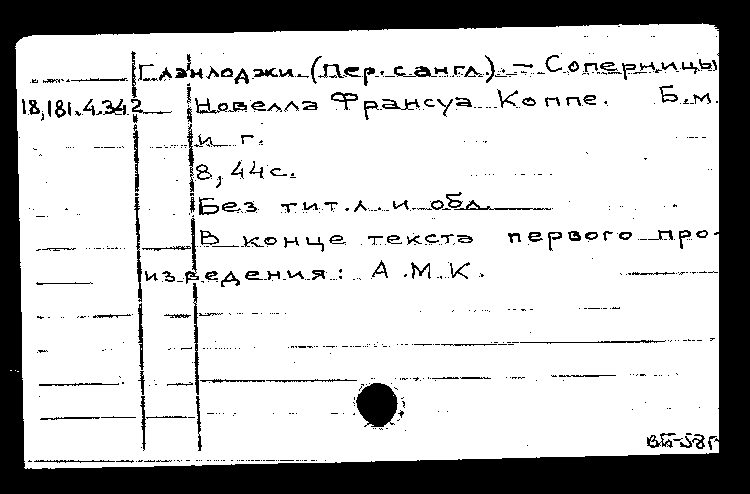 Глэнлоджи. (Пер. с англ.). – Соперницы
18,181.4.342 Новелла Франсуа Коппе. Б.м.
и г.
8, 44с.
Без тит.л. и обл.
В конце текста первого про-
изведения: А.М.К.